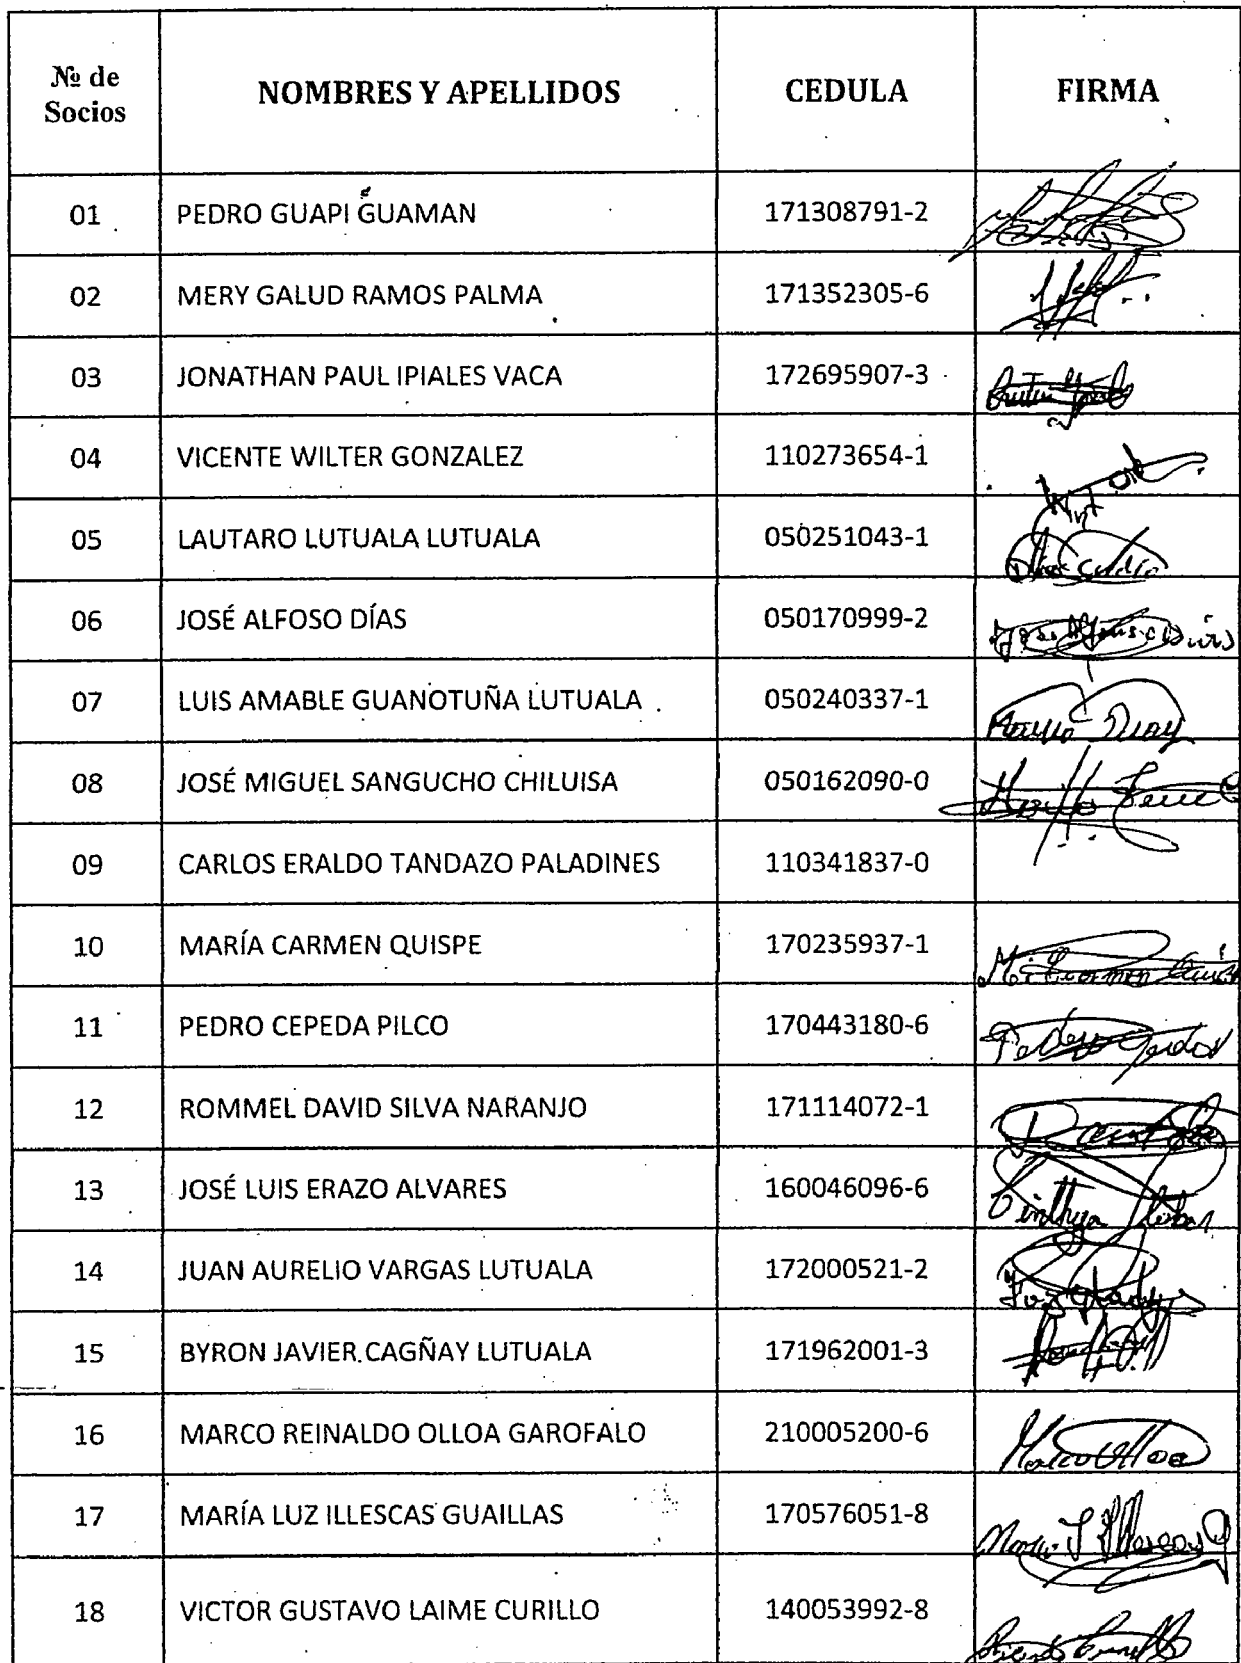 № de Socios NOMBRES Y APELLIDOS CEDULA FIRMA
01 PEDRO GUAPI GUAMAN 171308791-2
02 MERY GALUD RAMOS PALMA 171352305-6
03 JONATHAN PAUL IPIALES VACA 172695907-3
04 VICENTE WILTER GONZALEZ 110273654-1
05 LAUTARO LUTUALA LUTUALA 050251043-1
06 JOSÉ ALFOSO DÍAS 050170999-2
07 LUIS AMABLE GUANOTUÑA LUTUALA 050240337-1
08 JOSÉ MIGUEL SANGUCHO CHILUISA 050162090-0
09 CARLOS ERALDO TANDAZO PALADINES 110341837-0
10 MARÍA CARMEN QUISPE 170235937-1
11 PEDRO CEPEDA PILCO 170443180-6
12 ROMMEL DAVID SILVA NARANJO 171114072-1
13 JOSÉ LUIS ERAZO ALVARES 160046096-6
14 JUAN AURELIO VARGAS LUTUALA 172000521-2
15 BYRON JAVIER CAGÑAY LUTUALA 171962001-3
16 MARCO REINALDO OLLOA GAROFALO 210005200-6 Marco Ulloa
17 MARÍA LUZ ILLESCAS GUAILLAS 170576051-8
18 VICTOR GUSTAVO LAIME CURILLO 140053992-8